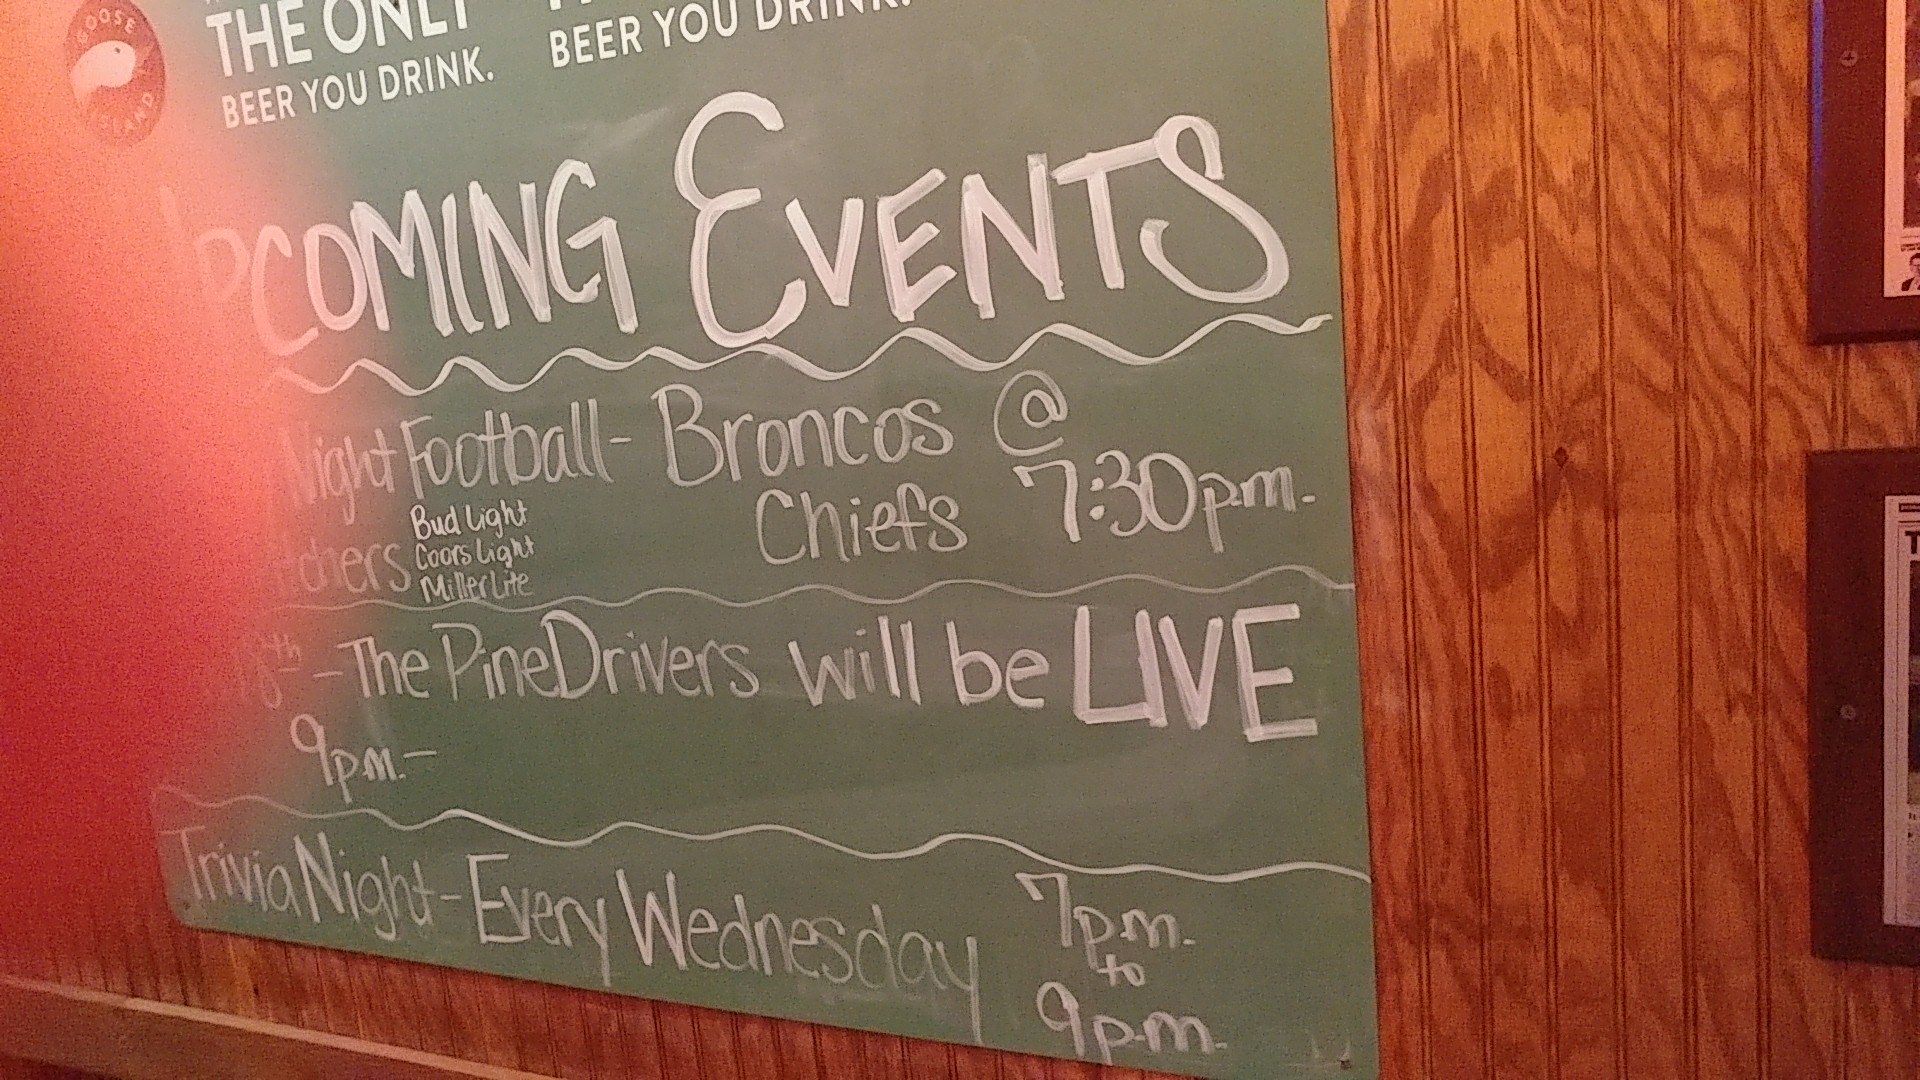 GOOSE
ISLAND
THE ONLY
BEER YOU DRINK.
BEER YOU DRINK.
UPCOMING EVENTS
Night Football - Broncos @
Chiefs 7:30p.m.
Bud Light
Coors Light
Miller Lite
8th - The PineDrivers will be LIVE
9p.m. -
Trivia Night - Every Wednesday 7p.m.
to
9p.m.